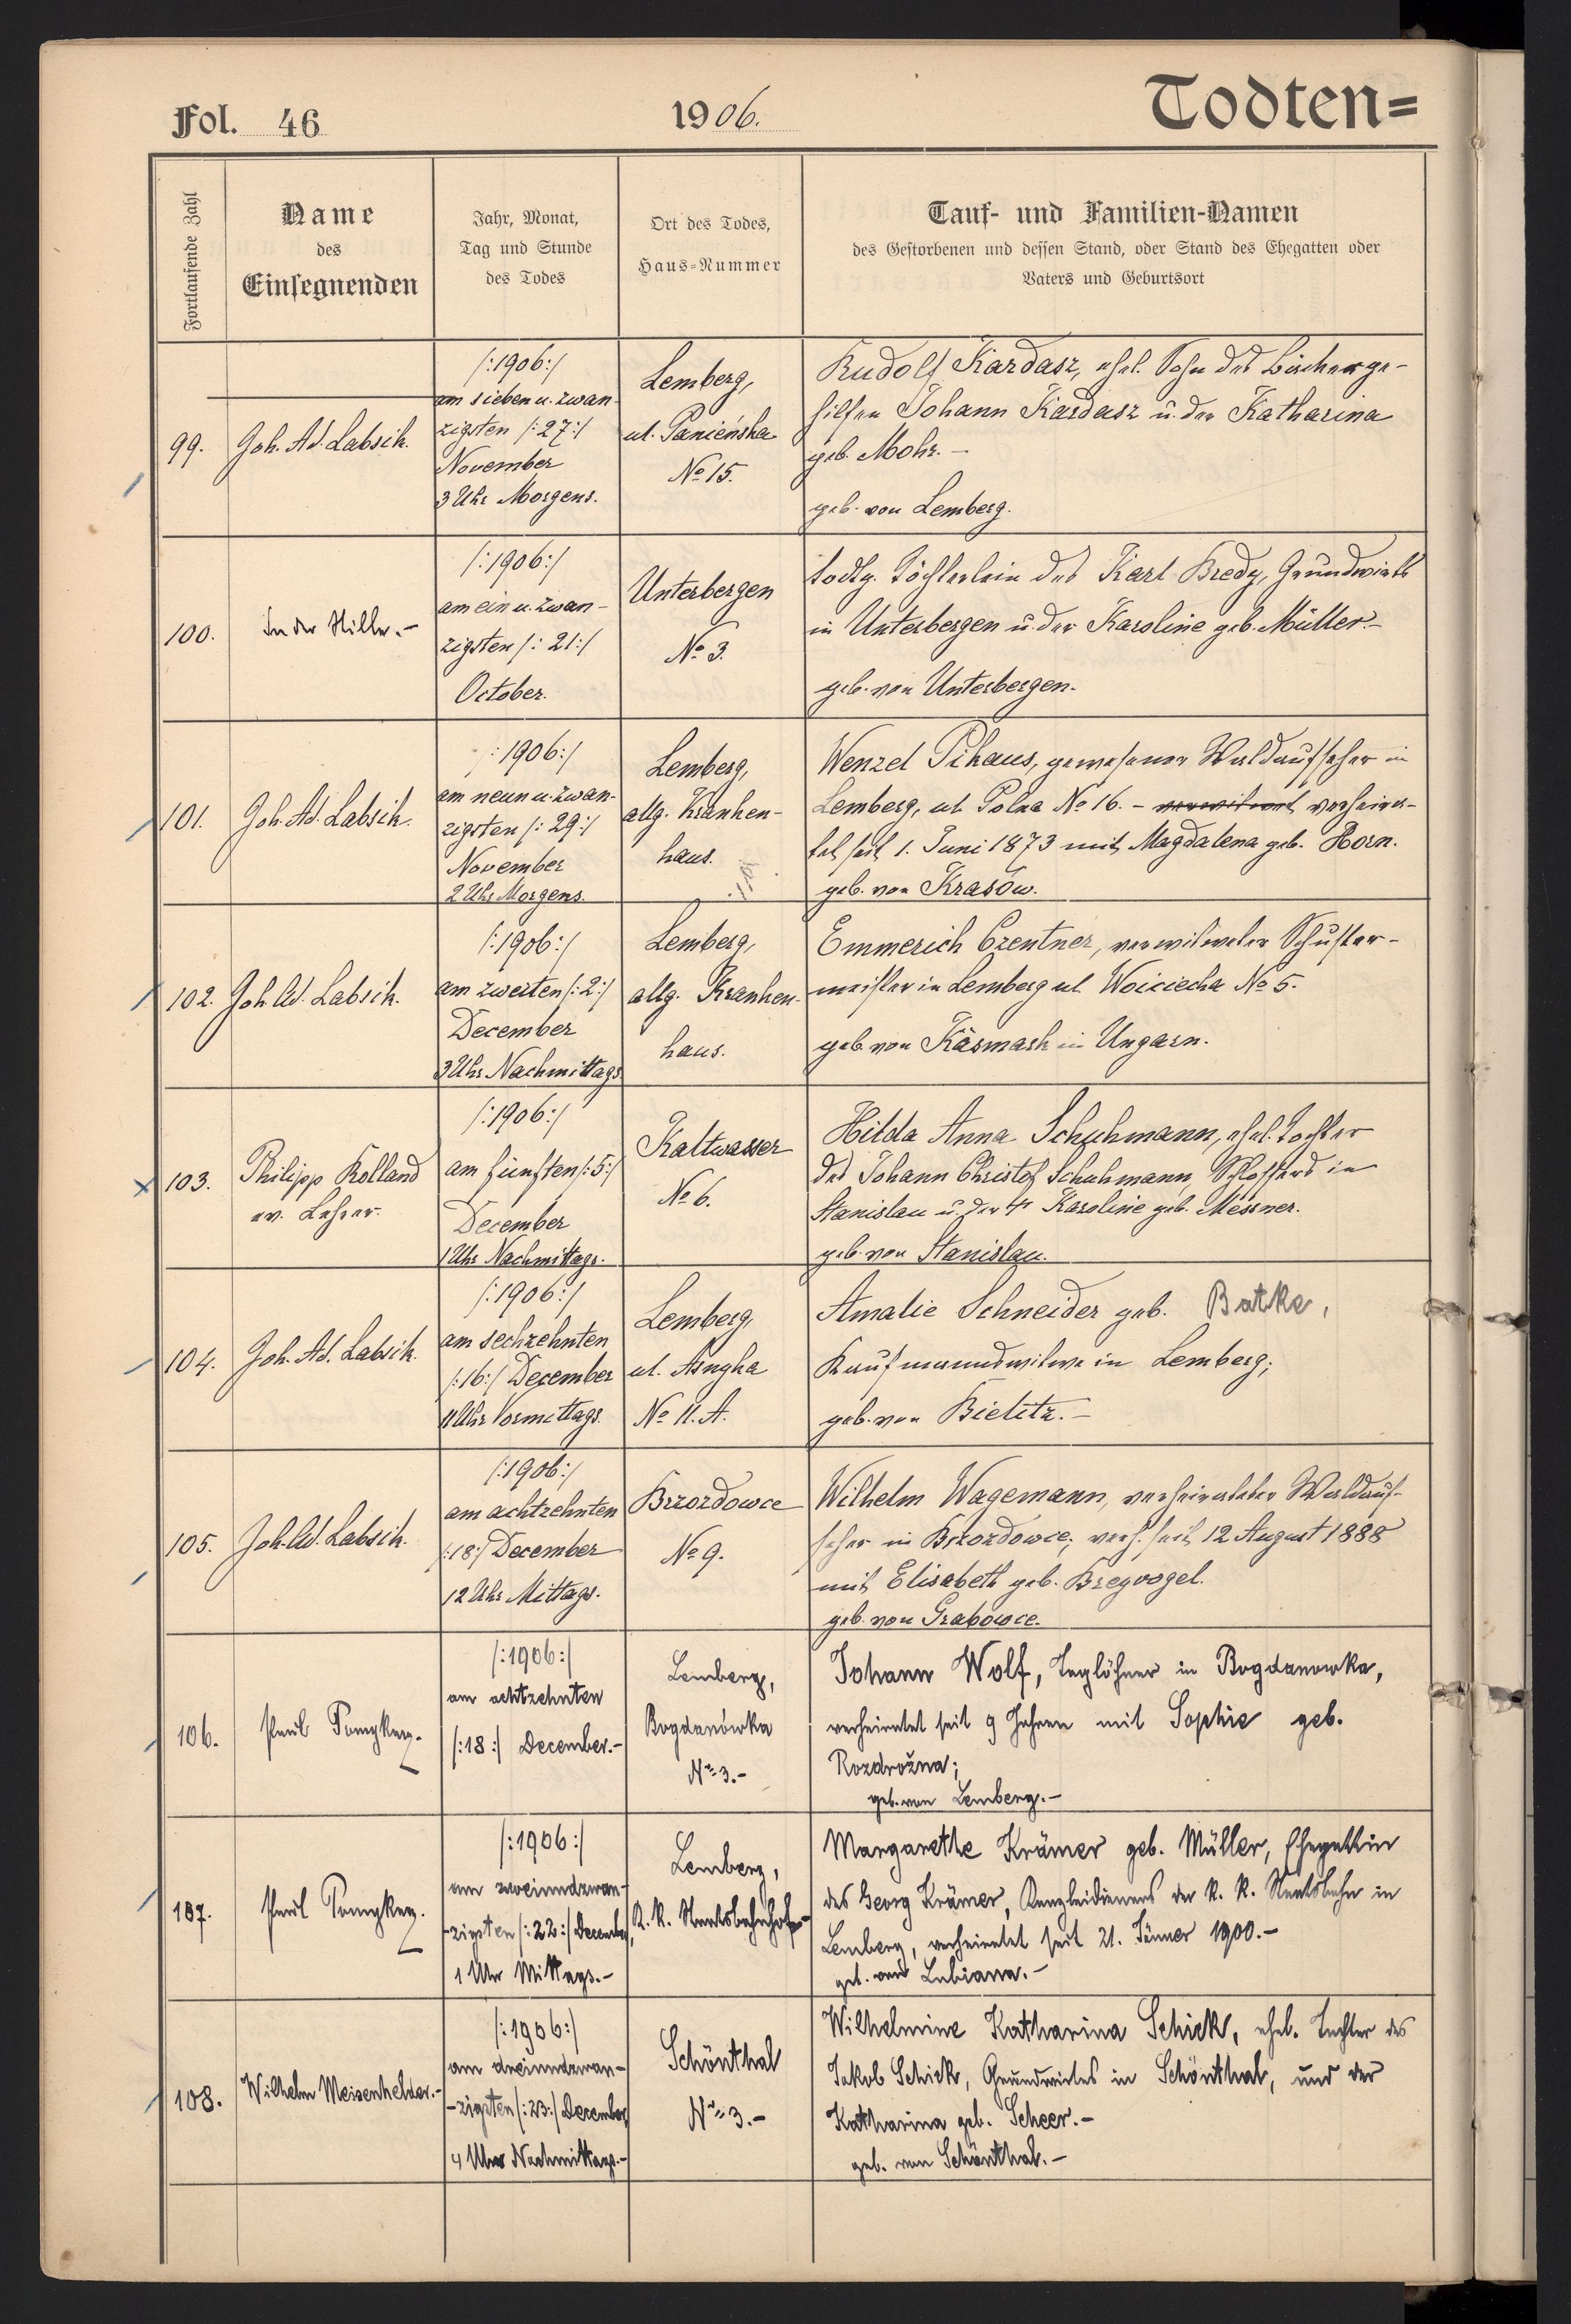 Fol. 46
1906.
Todten=
Fortlaufende Zahl
Name
des
Einsegnenden
Jahr, Monat,
Tag und Stunde
des Todes
Ort des Todes,
Haus=Nummer
Tauf- und Familien-Namen
des Gestorbenen und dessen Stand, oder Stand des Ehegatten oder
Vaters und Geburtsort
99.
Joh. Ad. Labsik.
/:1906:/
am sieben u. zwan-
zigsten /:27:/
November
3 Uhr Morgens.
Lemberg,
ul. Panieńska
No 15.
Rudolf Kardasz, ehel. Sohn des
hilfen Johann Kardasz u. der Katharina
geb. Mohr. –
geb. von Lemberg.
100.
In der Stille. –
/:1906:/
am ein u. zwan-
zigsten /:21:/
October.
Unterbergen
No 3.
todtg. Töchterlein des Karl Bredy, Grundwirts
in Unterbergen u. der Karoline geb. Müller. –
geb. von Unterbergen.
101.
Joh. Ad. Labsik.
/:1906:/
am neun u. zwan-
zigsten /:29:/
November
2 Uhr Morgens.
Lemberg,
allg. Kranken-
haus.
Wenzel Pihaus, gewesener Waldaufseher in
Lemberg, ul. Polna No 16. – verwitwet verheira-
tet seit 1. Juni 1873 mit Magdalena geb. Horn.
geb. von Krasów.
102.
Joh. Ad. Labsik.
/:1906:/
am zweiten /:2:/
December
3 Uhr Nachmittags
Lemberg,
allg. Kranken-
haus.
Emmerich Czentner, verwitweter Schuster-
meister in Lemberg ul. Woiciecha No 5.
geb. von Käsmark in Ungarn.
103.
Philipp Kolland
ev. Lehrer.
/:1906:/
am fünften /:5:/
December
1 Uhr Nachmittags.
Kaltwasser
No 6.
Hilda Anna Schuhmann, ehel. Tochter
des Johann Christof Schuhmann, Schlossers in
Stanislau u. der Karoline geb. Messner.
geb. von Stanislau.
104.
Joh. Ad. Labsik.
/:1906:/
am sechzehnten
/:16:/ December
11 Uhr Vormittags.
Lemberg,
ul. Asnyka
No 11. A.
Amalie Schneider geb. Batke,
Kaufmannswitwe in Lemberg;
geb. von Bielitz. –
105.
Joh. Ad. Labsik.
/:1906:/
am achtzehnten
/:18:/ December
12 Uhr Mittags.
Brzozdowce
No 9.
Wilhelm Wagemann, verheirateter Waldauf-
seher in Brzozdowce; verh. seit 12 August 1888
mit Elisabeth geb. Bregvogel.
geb. von Grabowce.
106.
Paul
/:1906:/
am achtzehnten
/:18:/ December. –
Lemberg,
Bogdanówka
No 3. –
Johann Wolf, Taglöhner in Bogdanowka,
verheiratet seit 9 Jahren mit Sophie geb.
Rozdrožna;
geb. von Lemberg. –
107.
Paul
/:1906:/
am zweiundzwan-
-zigsten /:22:/ December,
1 Uhr Mittags. –
Lemberg,
k. k. Staatsbahnhof. –
Margarethe Krämer geb. Müller, Ehegattin
des Georg Krämer, Kanzleidieners der k. k. Staatsbahn in
Lemberg, verheiratet seit 21. Jänner 1900. –
geb. von Lubiana. –
108.
Wilhelm Meisenhelder. –
/:1906:/
am dreiundzwan-
-zigsten /:23:/ December
4 Uhr Nachmittags. –
Schönthal
No 3. –
Wilhelmine Katharina Schick, ehel. Tochter des
Jakob Schick, Grundwirtes in Schönthal, und der
Katharina geb. Scheer. –
geb. von Schönthal. –